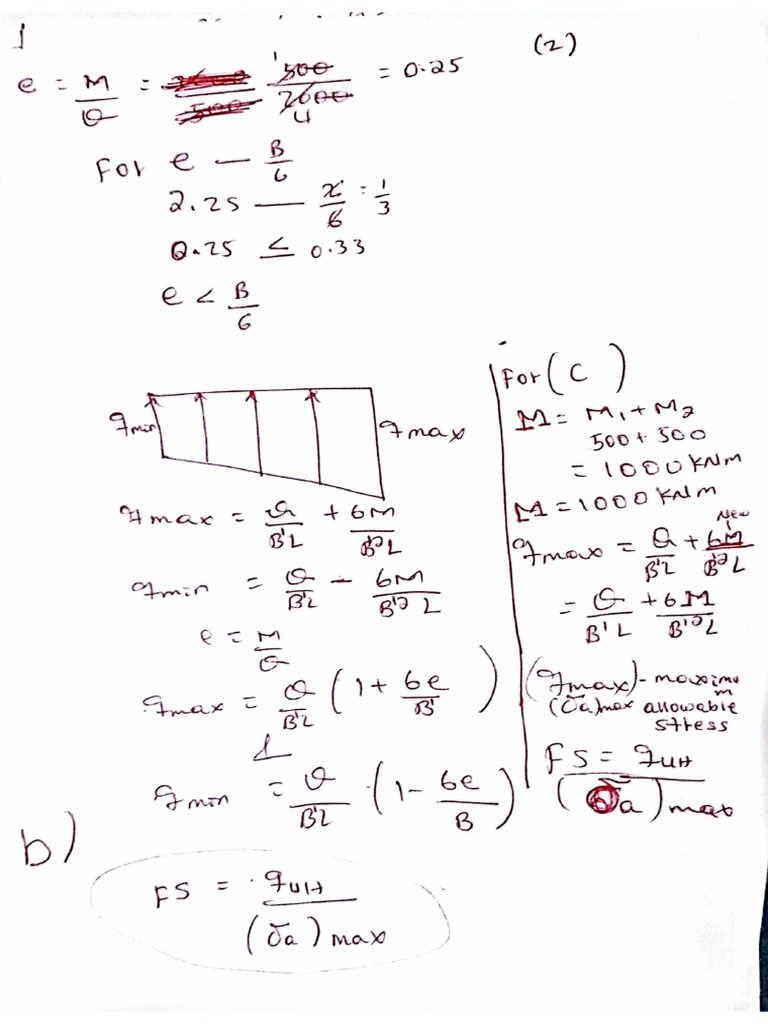 1
(2)
e = M/Q = 500/2000 4 = 0.25
For e — B/6
2.25 — x/6 = 1/3
0.25 ≤ 0.33
e < B/6
qmin
qmax
qmax = Q/B'L + 6M/B'²L
qmin = Q/B'L - 6M/B'²L
e = M/Q
qmax = Q/B'L (1 + 6e/B')
qmin = Q/B'L · (1 - 6e/B)
b)
FS = qult/(σa)max
For (C)
M = M1 + M2
500 + 500
= 1000 KNM
M = 1000 KNM
New
qmax = Q/B'L + 6M/B'²L
= Q/B'L + 6M/B'²L
(qmax) - maximum
(σa)max allowable
stress
FS = qult/(σa)max